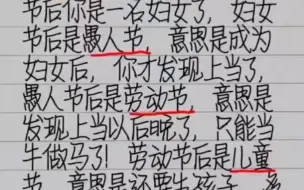 节后你是一名妇女了，妇女
节后是愚人节，意思是成为
妇女后，你才发现上当了，
愚人节后是劳动节，意思是
发现上当以后晚了，只能当
牛做马了！劳动节后是儿童
节，意思是还要生孩子，多